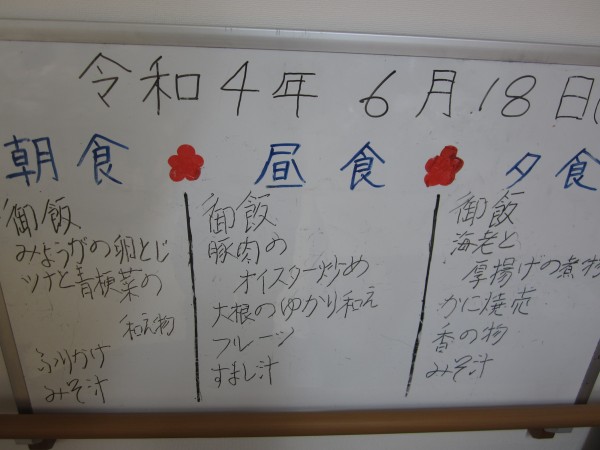 令和4年 6月18日(
朝食
昼食
夕食
御飯
みょうがの卵とじ
ツナと青梗菜の
和え物
ふりかけ
みそ汁
御飯
豚肉の
オイスター炒め
大根のゆかり和え
フルーツ
すまし汁
御飯
海老と
厚揚げの煮物
かに焼売
香の物
みそ汁